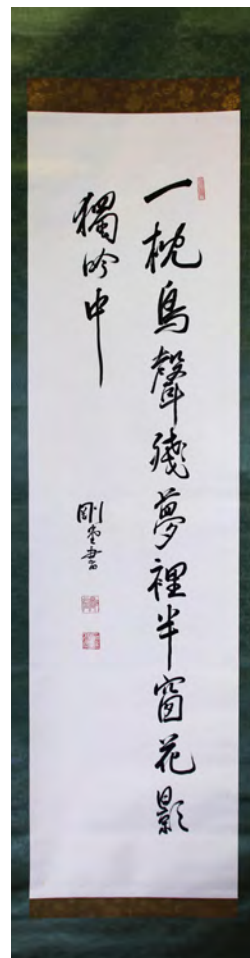 一枕鳥聲殘夢裡半窗花影
獨吟中
剛堂書